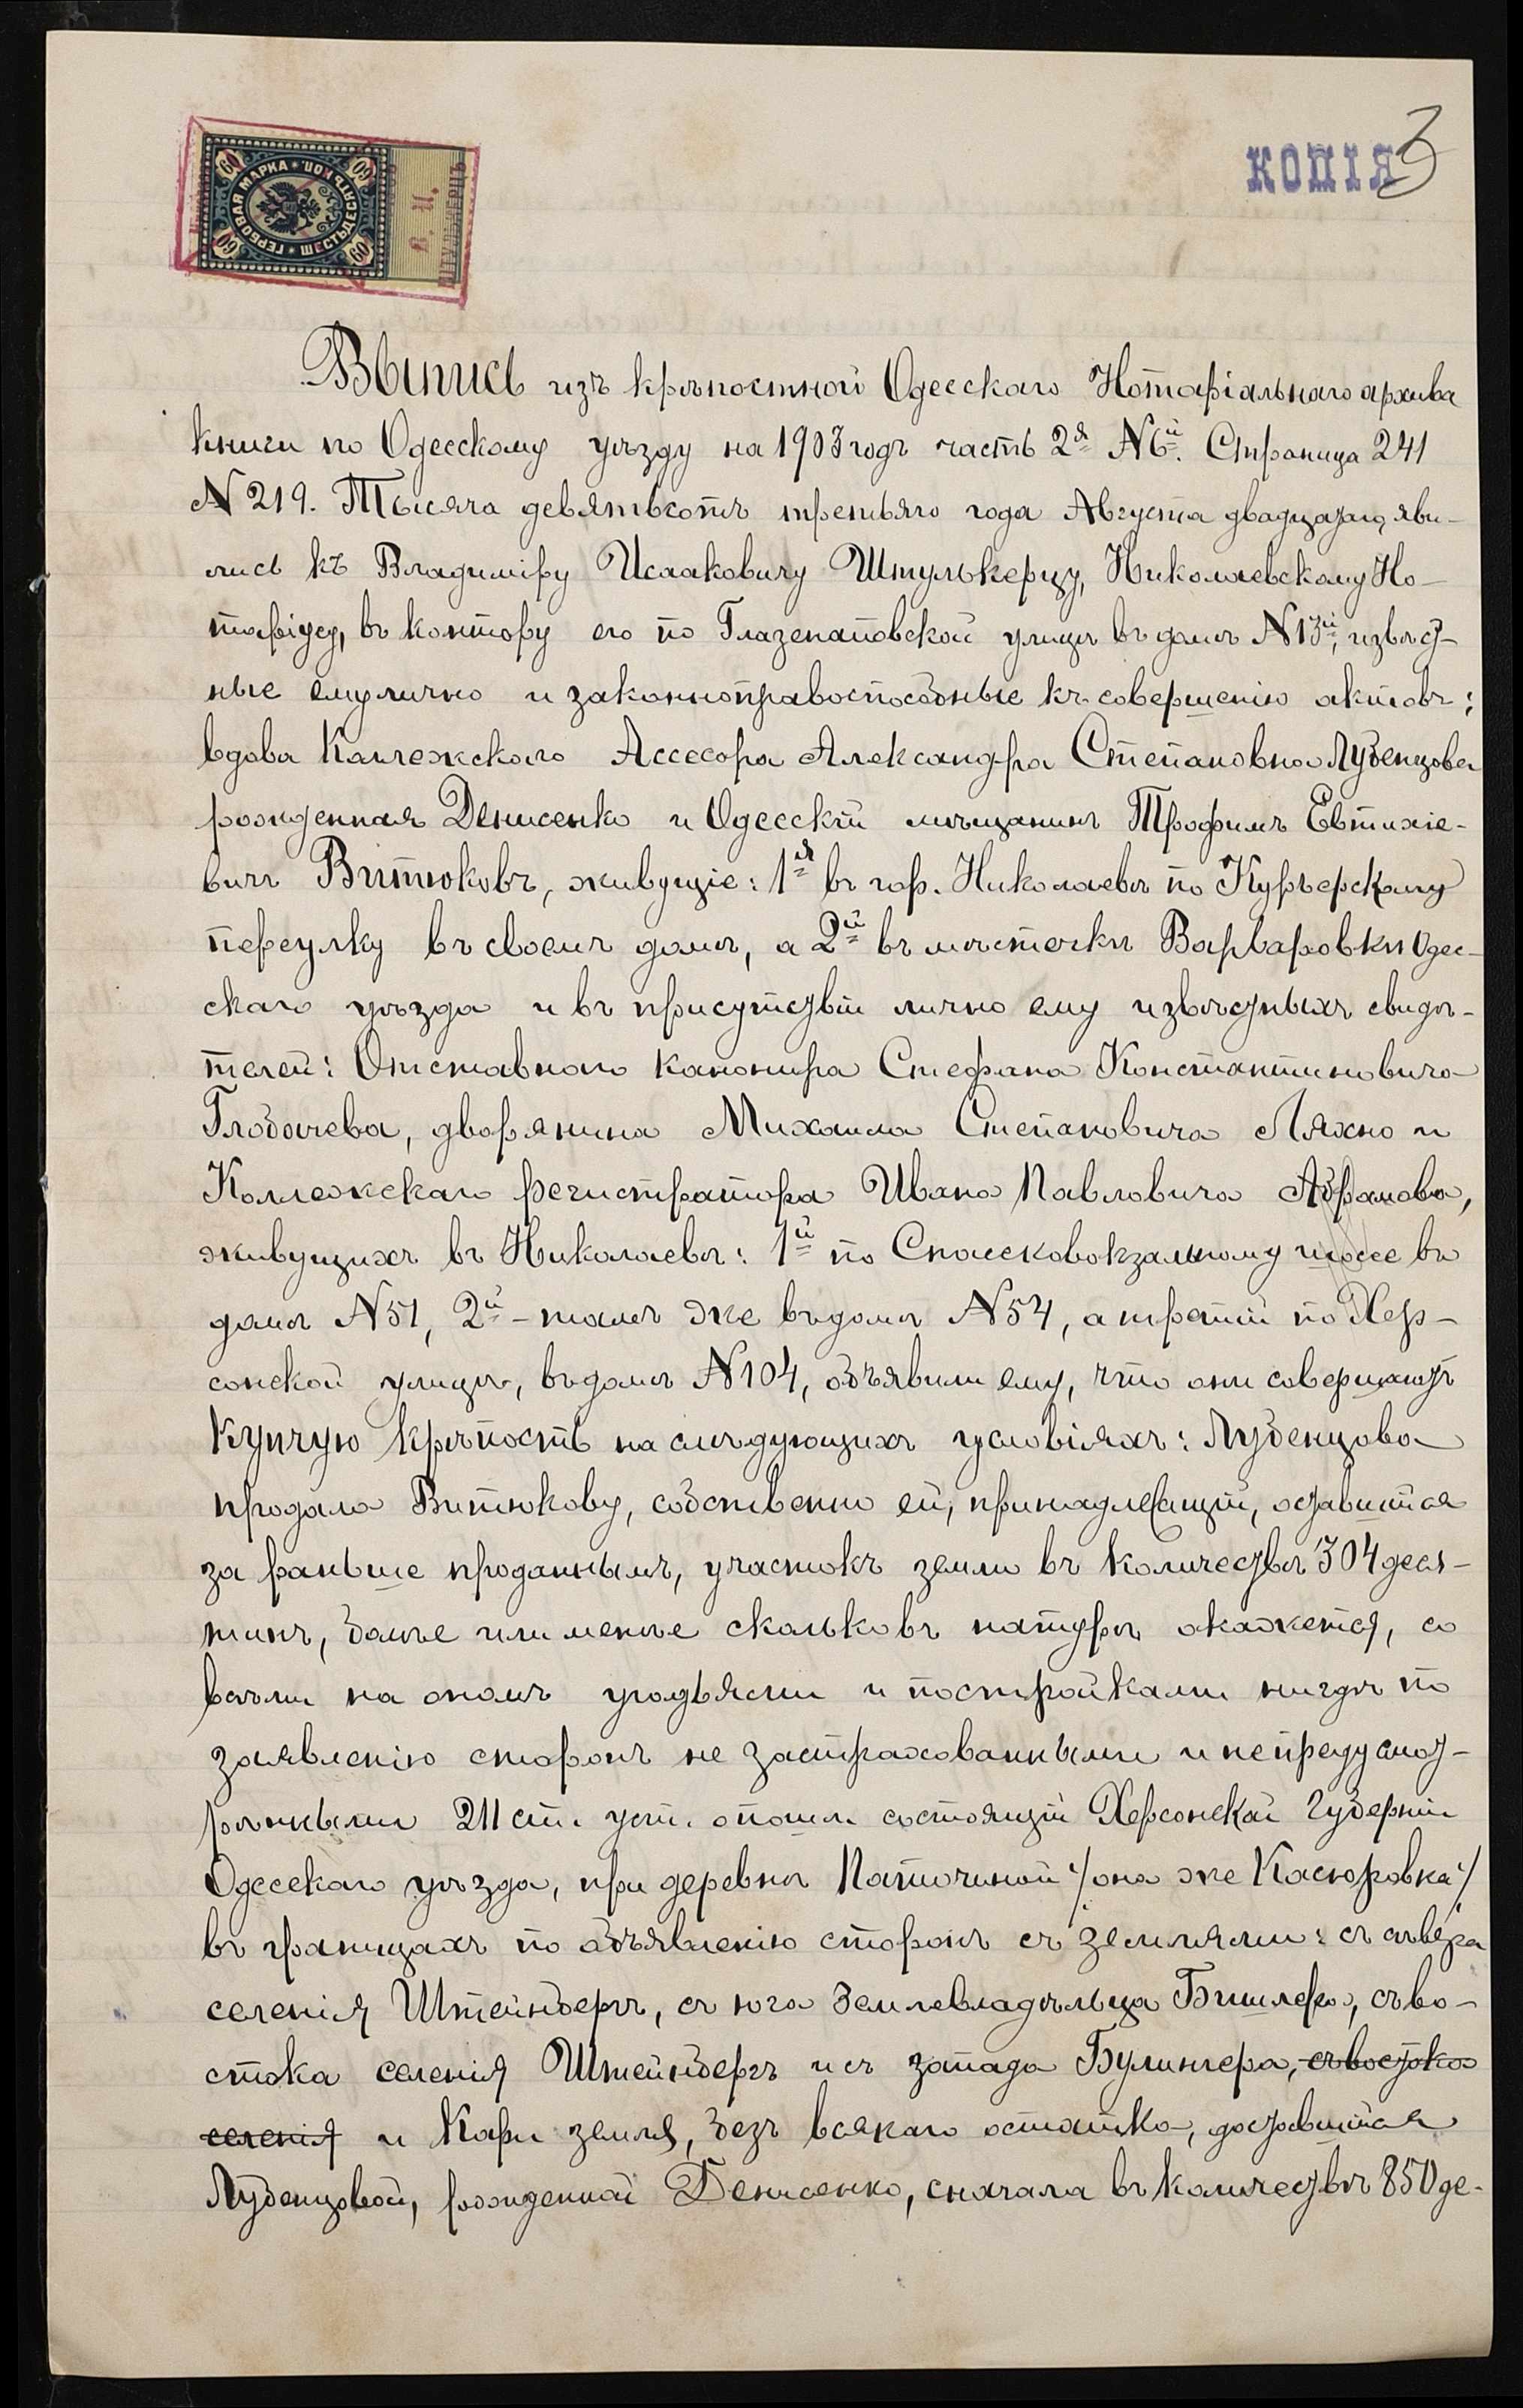 КОПІЯ 3
ГЕРБОВАЯ МАРКА * ШЕСТЬДЕСЯТЪ КОП. *
60 60 60 60
В. И.
Выпись изъ крѣпостной Одесскаго Нотаріальнаго архива
книги по Одесскому уѣзду на 1903 годъ часть 2я N 6й. Страница 241
N 219. Тысяча девятьсотъ третьяго года Августа двадцатаго, яви-
лись къ Владиміру Исааковичу Штулькерцу, Николаевскому Но-
таріусу, въ контору его по Глазенаповской улицѣ въ домѣ N 13й, извѣст-
ные ему лично и законноправоспособные къ совершенію актовъ:
вдова Коллежскаго Ассесора Александра Степановна Лубенцова
рожденная Денисенко и Одесскій мѣщанинъ Трофимъ Евтихіе-
вичъ Витюковъ, живущіе: 1я въ гор. Николаевѣ по Курьерскому
переулку въ своемъ домѣ, а 2й въ мѣстечкѣ Варваровкѣ Одес-
скаго уѣзда и въ присутствіи лично ему извѣстныхъ свидѣ-
телей: Отставного канонира Стефана Константиновича
Глобачева, дворянина Михаила Степановича Ляхно и
Коллежскаго регистратора Ивана Павловича Абрамова,
живущихъ въ Николаевѣ: 1й по Спасскововокзальному шоссе въ
домѣ N 51, 2й - тамъ же въ домѣ N 54, а третій по Хер-
сонской улицѣ, въ домѣ N 104, объявили ему, что они совершаютъ
купчую крѣпость на слѣдующихъ условіяхъ: Лубенцова
продала Витюкову, собственно ей, принадлежащій, оставшійся
за раньше проданнымъ, участокъ земли въ количествѣ 304 деся-
тинъ, болѣе или менѣе сколько въ натурѣ окажется, со
всѣми на ономъ угодьями и постройками нигдѣ по
заявленію сторонъ не застрахованными и непредусмот-
рѣнными 211 ст. уст. о пошл. состоящій Херсонской губерніи
Одесскаго уѣзда, при деревнѣ Паточиной /она же Касюровка/
въ границахъ по объявленію сторонъ съ землями: съ сѣвера
селенія Штейнбергъ, съ юга землевладѣльца Бишлера, съ во-
стока селенія Штейнбергъ и съ запада Булингера, съ востока
селенія и Кари земля, безъ всякаго остатка, доставшійся
Лубенцовой, рожденной Денисенко, сначала въ количествѣ 850 де-